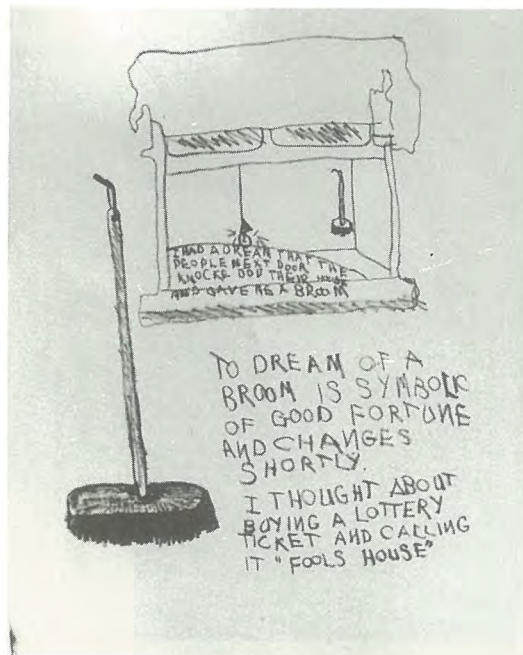 I HAD A DREAM THAT
PEOPLE NEXT DOOR THE
KNOCKE DOD THEIR HOUSE
AND GAVE ME A BROOM
TO DREAM OF A
BROOM IS SYMBOLIC
OF GOOD FORTUNE
AND CHANGES
SHORTLY.
I THOUGHT ABOUT
BUYING A LOTTERY
TICKET AND CALLING
IT "FOOLS HOUSE"